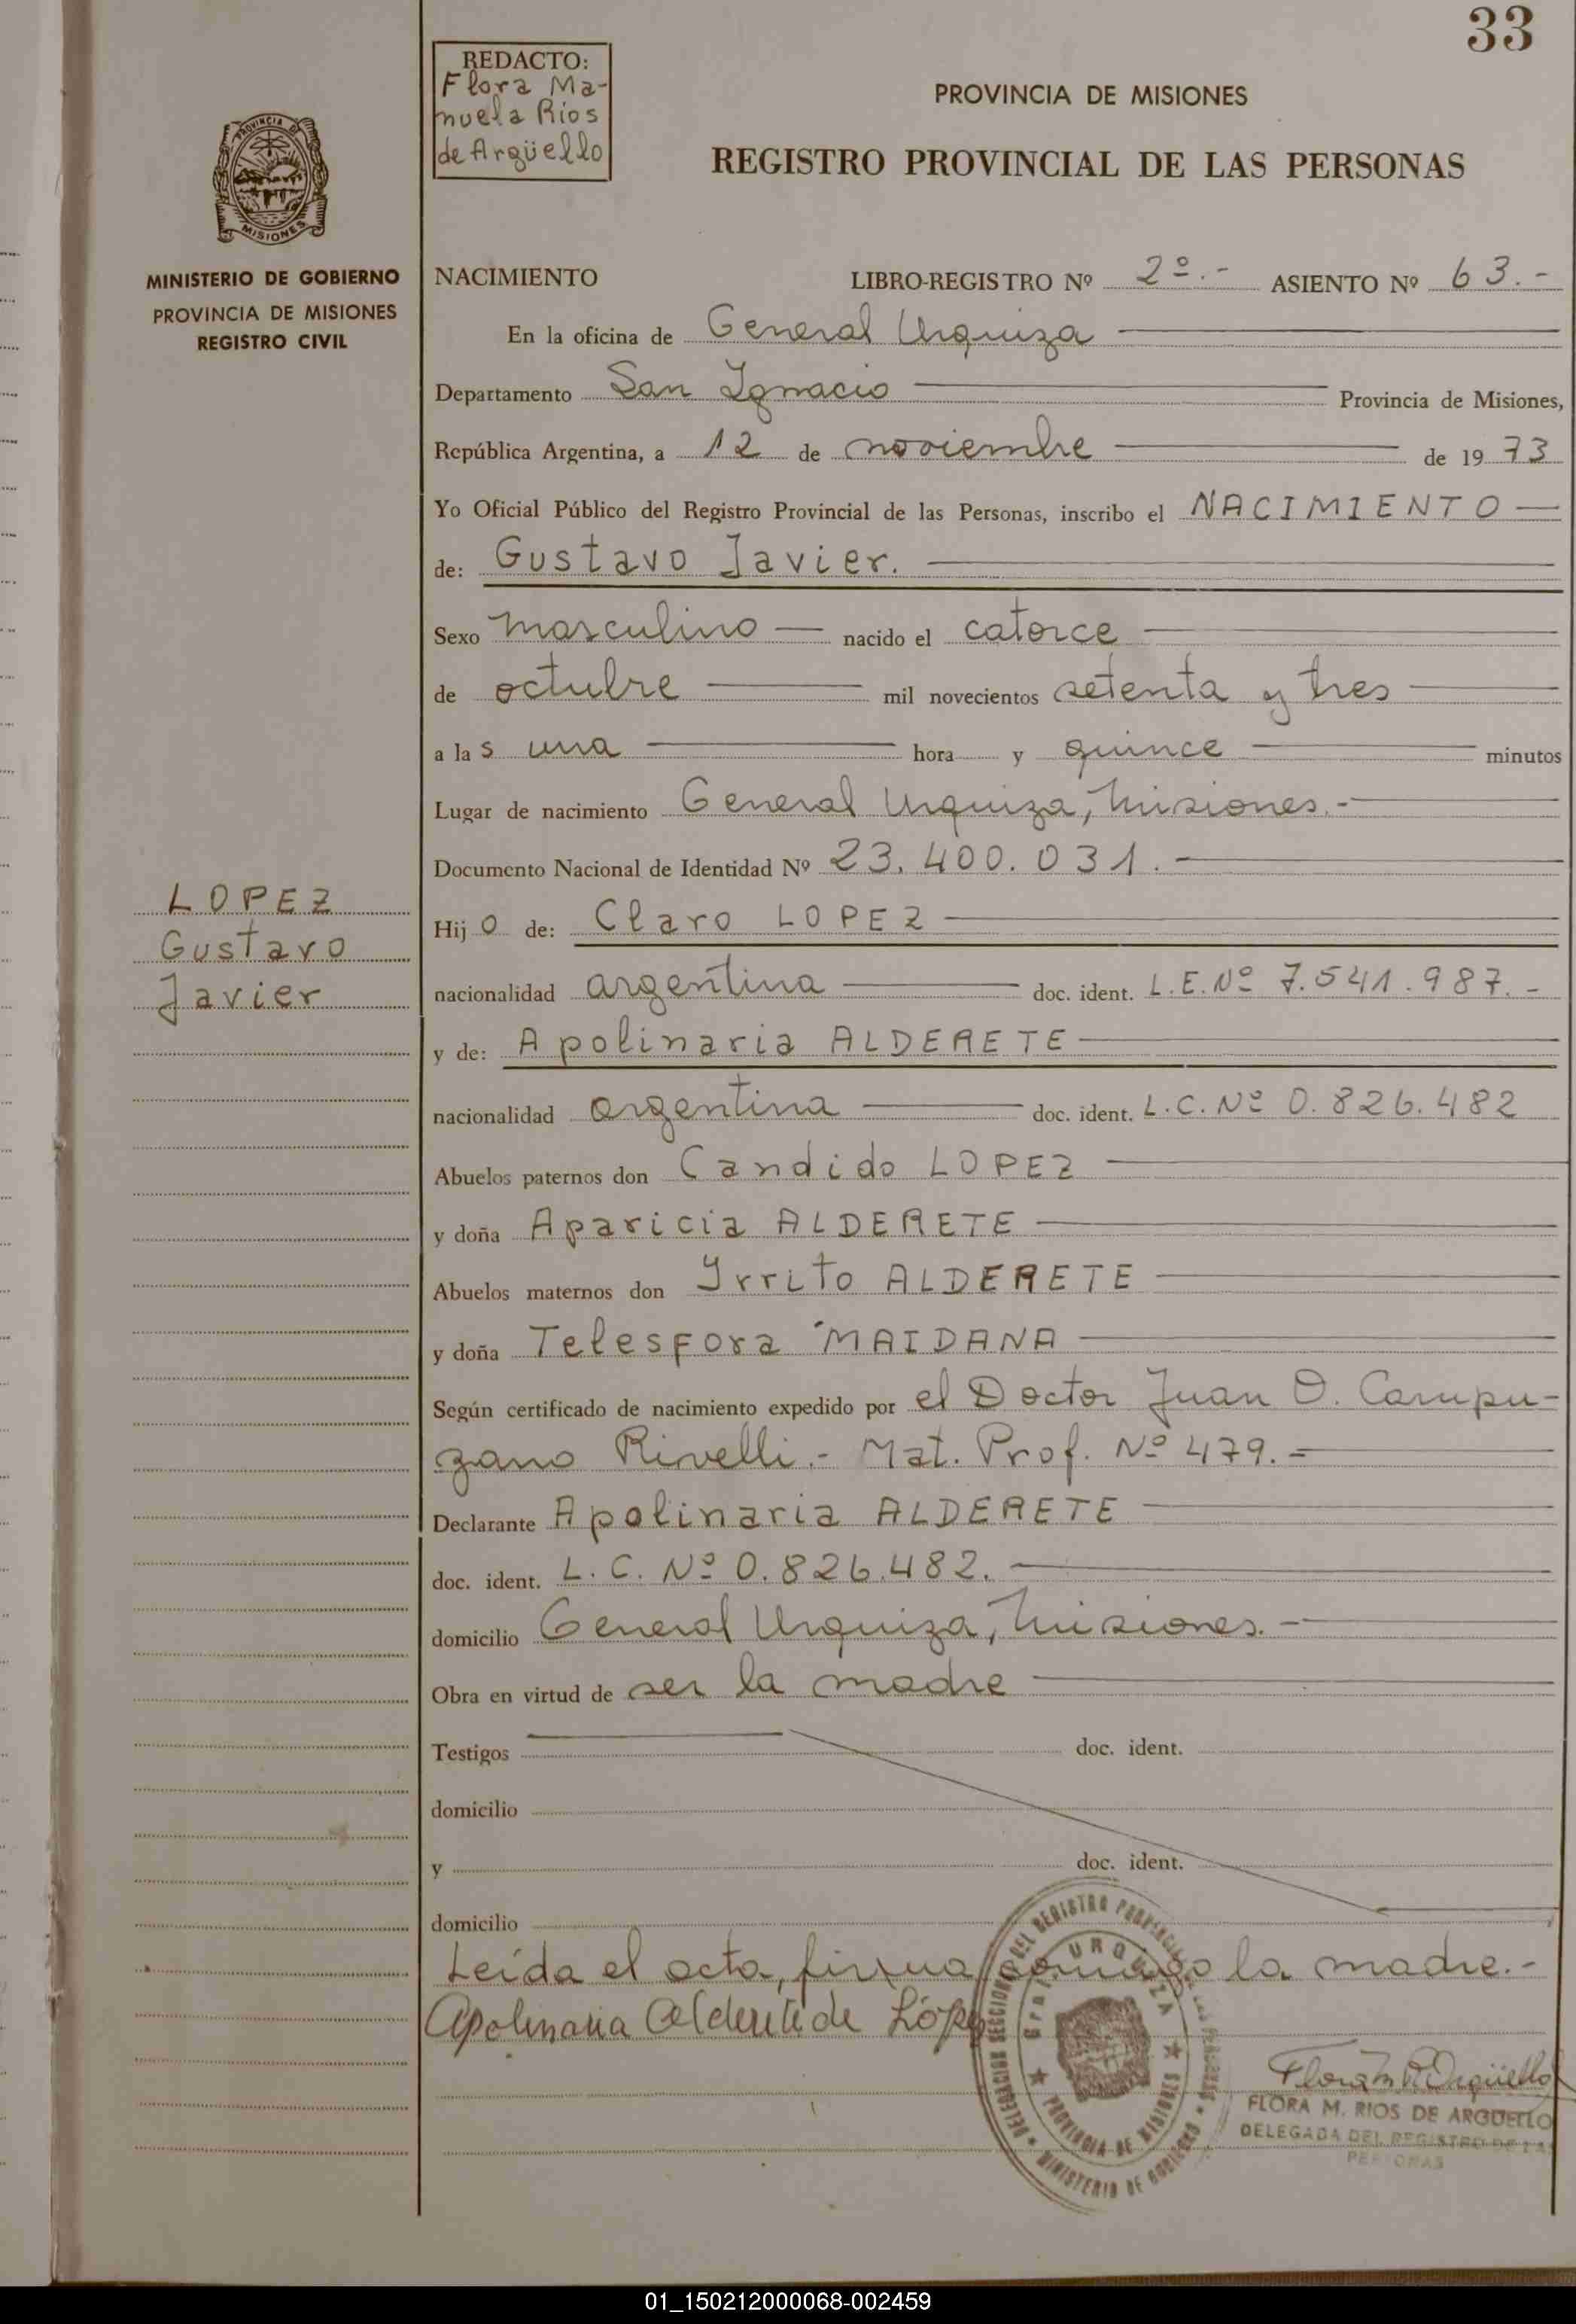 33
REDACTO:
Flora Ma-
nuela Ríos
de Argüello
PROVINCIA DE MISIONES
REGISTRO PROVINCIAL DE LAS PERSONAS
PROVINCIA DE
MISIONES
MINISTERIO DE GOBIERNO
PROVINCIA DE MISIONES
REGISTRO CIVIL
NACIMIENTO LIBRO-REGISTRO Nº 2º.- ASIENTO Nº 63.-
En la oficina de General Urquiza
Departamento San Ignacio Provincia de Misiones,
República Argentina, a 12 de noviembre de 1973
Yo Oficial Público del Registro Provincial de las Personas, inscribo el NACIMIENTO
de: Gustavo Javier.
Sexo masculino nacido el catorce
de octubre mil novecientos setenta y tres
a las una hora y quince minutos
Lugar de nacimiento General Urquiza, Misiones.-
Documento Nacional de Identidad Nº 23.400.031.
LOPEZ
Gustavo
Javier
Hijo de: Claro LOPEZ
nacionalidad argentina doc. ident. L.E.Nº 7.541.987.-
y de: Apolinaria ALDERETE
nacionalidad argentina doc. ident. L.C.Nº 0.826.482
Abuelos paternos don Candido LOPEZ
y doña Aparicia ALDERETE
Abuelos maternos don Yrrito ALDERETE
y doña Telesfora MAIDANA
Según certificado de nacimiento expedido por el Doctor Juan O. Campu-
zano Rivelli.- Mat. Prof. Nº 479.-
Declarante Apolinaria ALDERETE
doc. ident. L.C. Nº 0.826.482.
domicilio General Urquiza, Misiones.-
Obra en virtud de ser la madre
Testigos doc. ident.
domicilio
y doc. ident.
domicilio
Leída el acta, firma conmigo la madre.-
Apolinaria Alderete de López
DELEGACION SECCIONAL DEL REGISTRO PROVINCIAL DE LAS PERSONAS
Gral. URQUIZA
PROVINCIA DE MISIONES
MINISTERIO DE GOBIERNO
Flora M R Argüello
FLORA M. RIOS DE ARGÜELLO
DELEGADA DEL REGISTRO DE LAS
PERSONAS
01_150212000068-002459